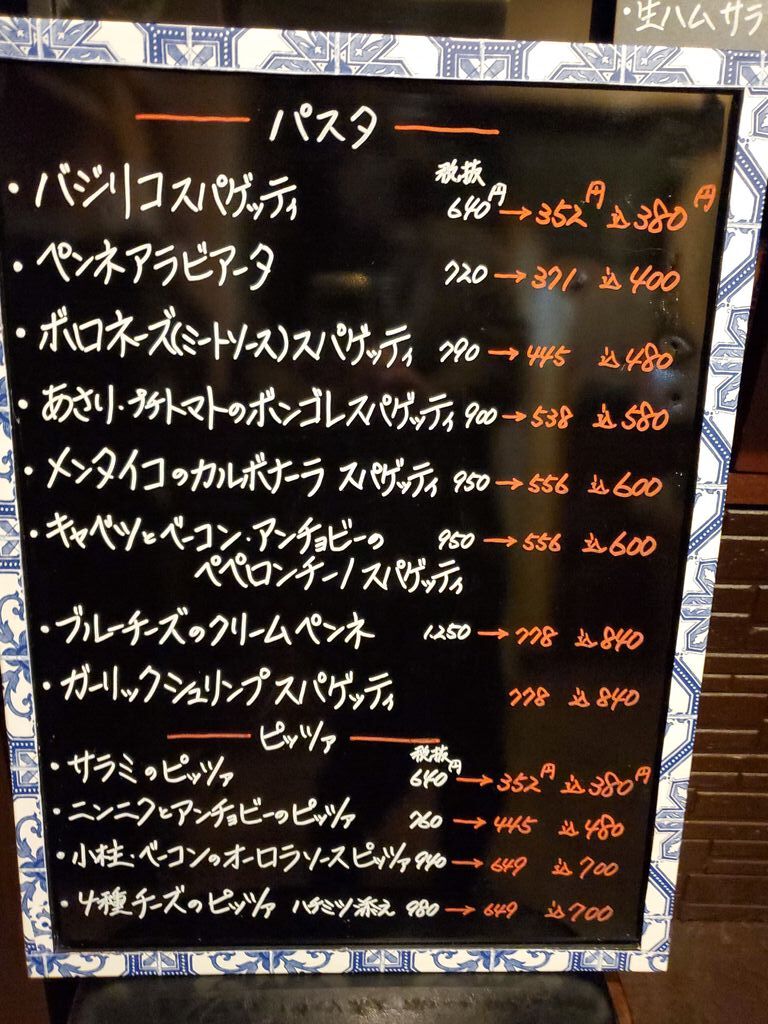 ・生ハムサラ
パスタ
税抜
・バジリコスパゲッティ 640円→352円 込380円
・ペンネアラビアータ 720→371 込400
・ボロネーズ(ミートソース)スパゲッティ 790→445 込480
・あさり・プチトマトのボンゴレスパゲッティ 900→538 込580
・メンタイコのカルボナーラ スパゲッティ 950→556 込600
・キャベツとベーコン・アンチョビーの 950→556 込600
ペペロンチーノスパゲッティ
・ブルーチーズのクリームペンネ 1250→778 込840
・ガーリックシュリンプスパゲッティ 778 込840
ピッツァ
税抜
・サラミのピッツァ 640円→352円 込380円
・ニンニクとアンチョビーのピッツァ 760→445 込480
・小柱・ベーコンのオーロラソースピッツァ 940→649 込700
・4種チーズのピッツァ ハチミツ添え 980→649 込700